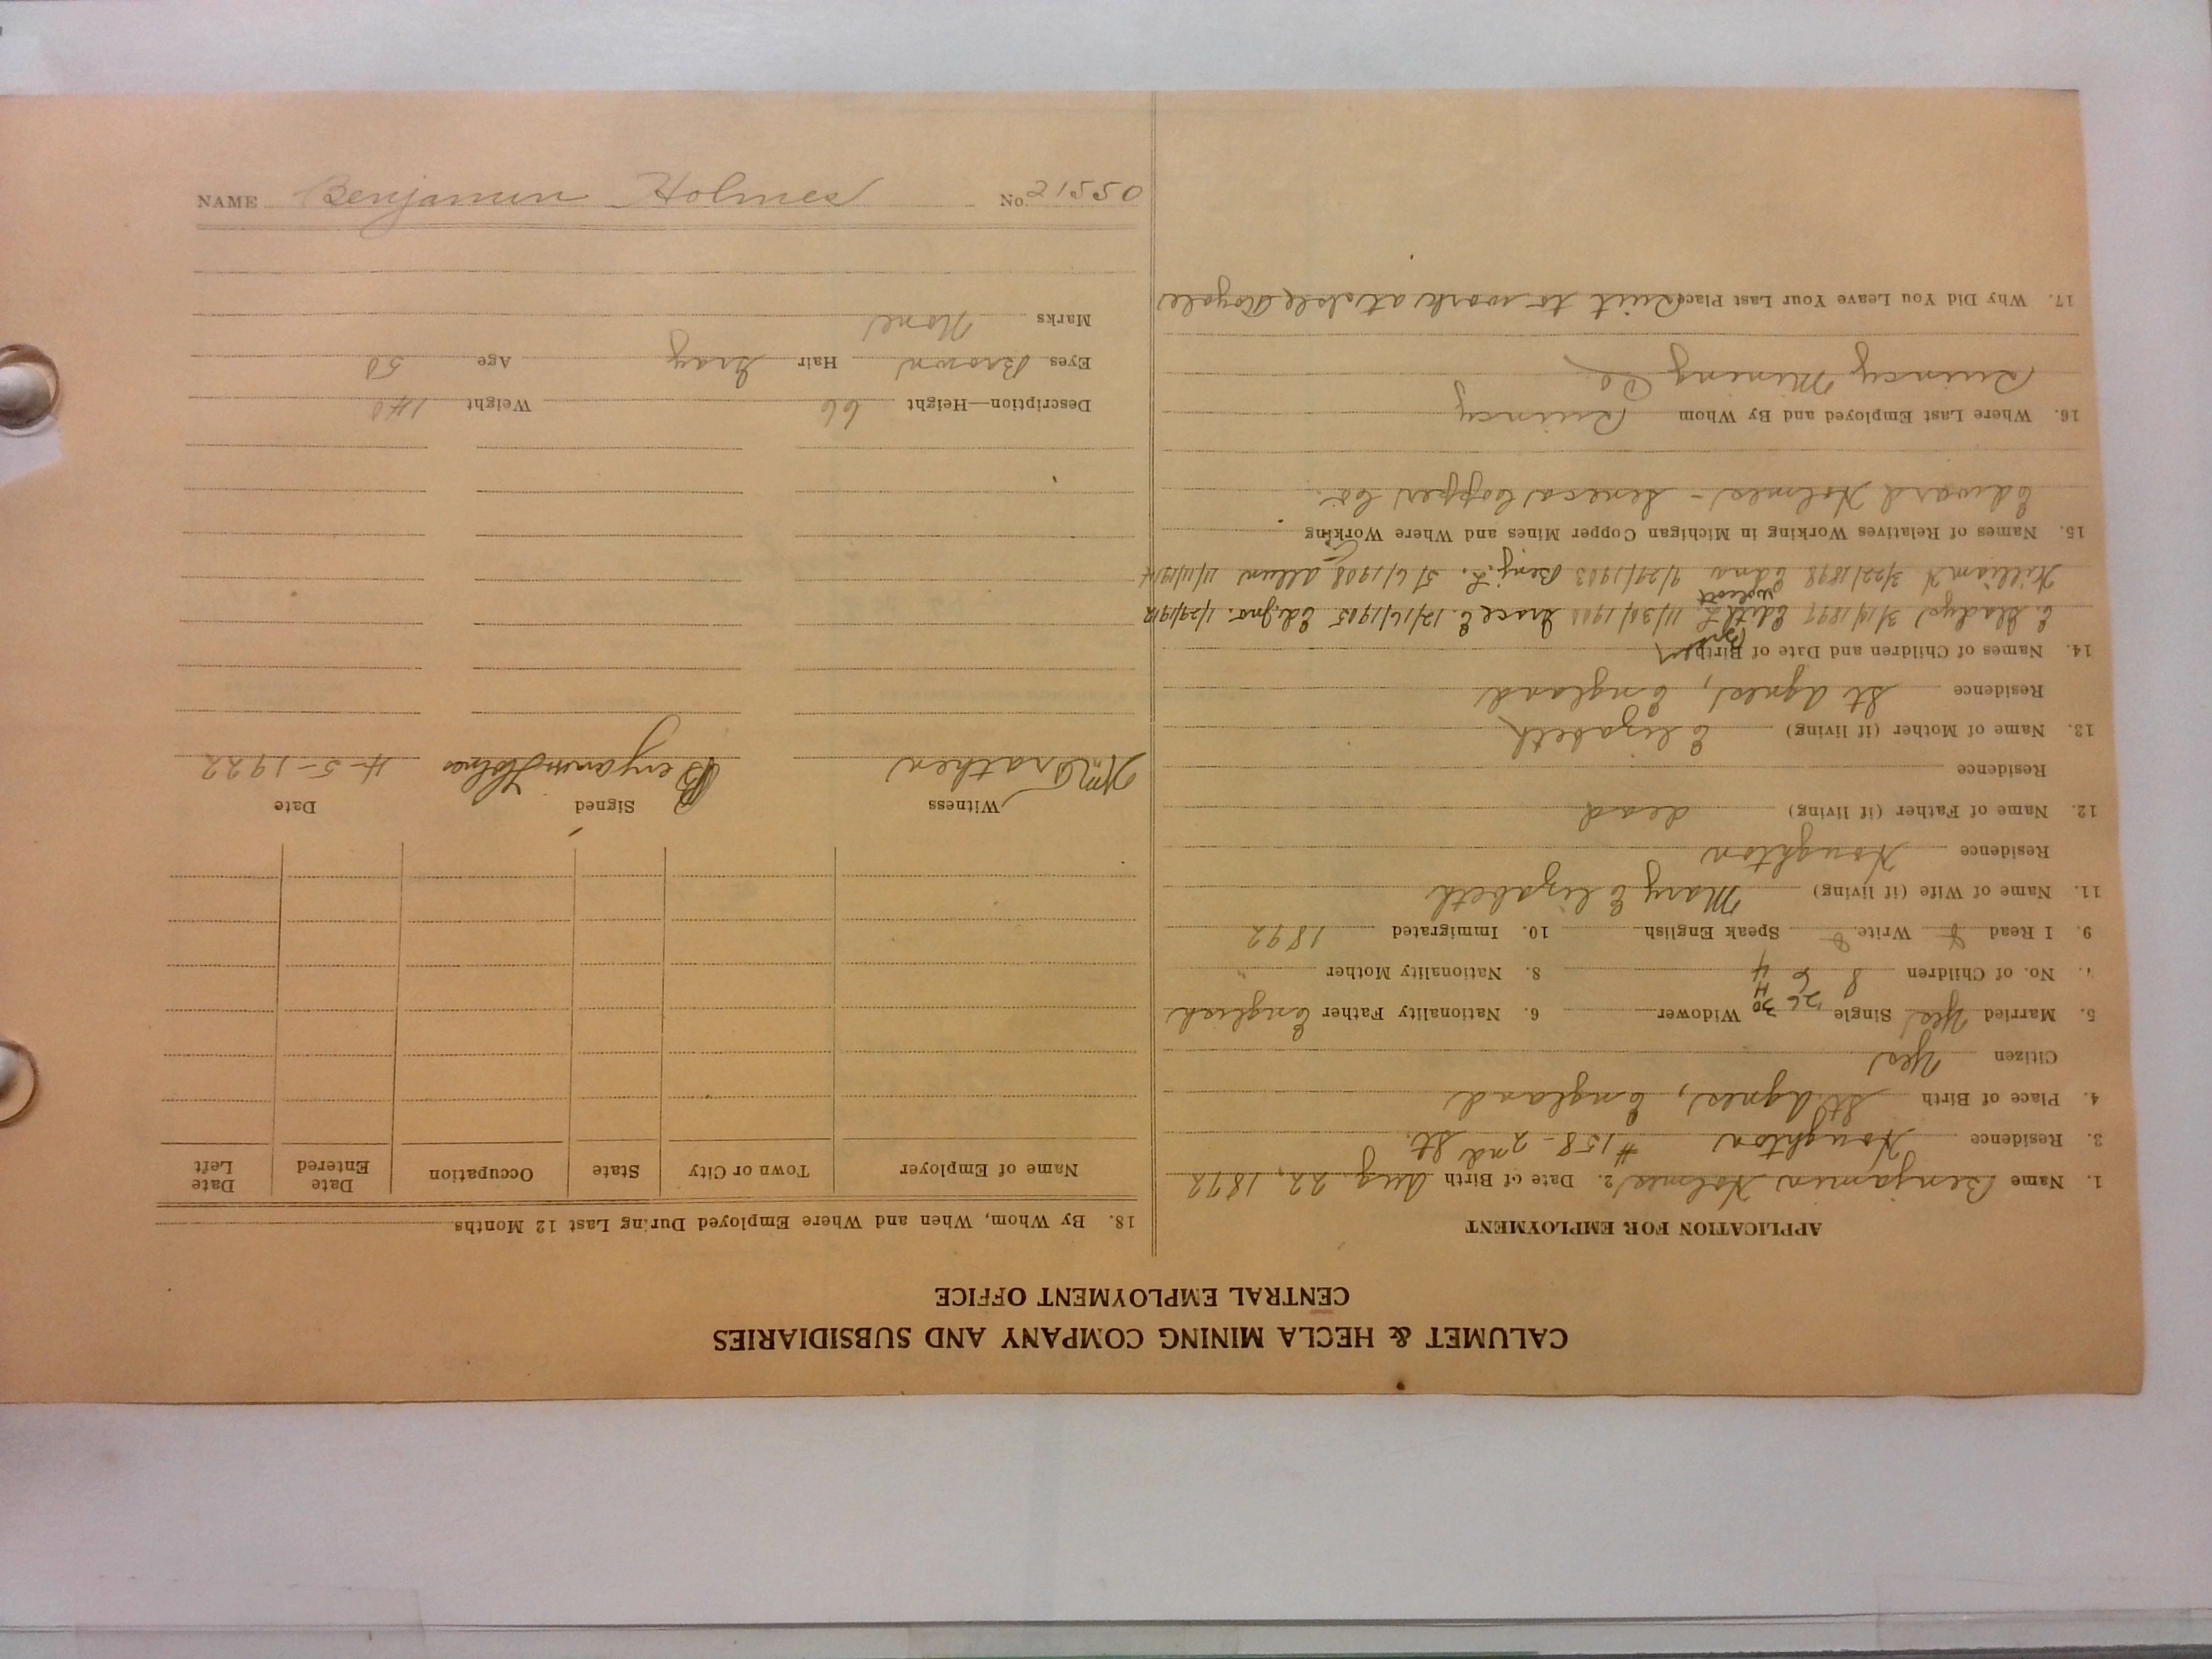 CALUMET & HECLA MINING COMPANY AND SUBSIDIARIES
CENTRAL EMPLOYMENT OFFICE
APPLICATION FOR EMPLOYMENT
1. Name Benjamin Holmes 2. Date of Birth Aug. 22, 1872
3. Residence Houghton #158-2nd St.
4. Place of Birth St Agnes, England
Citizen Yes
5. Married Yes Single 26 30 Widower 6. Nationality Father English
7. No. of Children 8 6 4 8. Nationality Mother "
9. I Read Write Speak English 10. Immigrated 1892
11. Name of Wife (if living) Mary Elizabeth
Residence Houghton
12. Name of Father (if living) dead
Residence
13. Name of Mother (if living) Elizabeth
Residence St Agnes, England
14. Names of Children and Date of Birth
E. Gladys 3/19/1897 Edith L. 11/30/1900 Grace E. 12/16/1905 Ed. Jno. 1/29/1912
William H 3/22/1898 Edna 9/29/1903 Benj. L. 5/6/1908 Allen C 11/11/1914
15. Names of Relatives Working in Michigan Copper Mines and Where Working
Edward Holmes - Seneca Copper Co.
16. Where Last Employed and By Whom Quincy
Quincy Mining Co.
17. Why Did You Leave Your Last Place Quit to work at Isle Royale
18. By Whom, When and Where Employed During Last 12 Months
Name of Employer Town or City State Occupation Date Entered Date Left
Witness Signed Date
Wm Grathen Benjamin Holmes 4-5-1922
Description—Height 66 Weight 140
Eyes Brown Hair Gray Age 50
Marks None
NAME Benjamin Holmes No. 21550